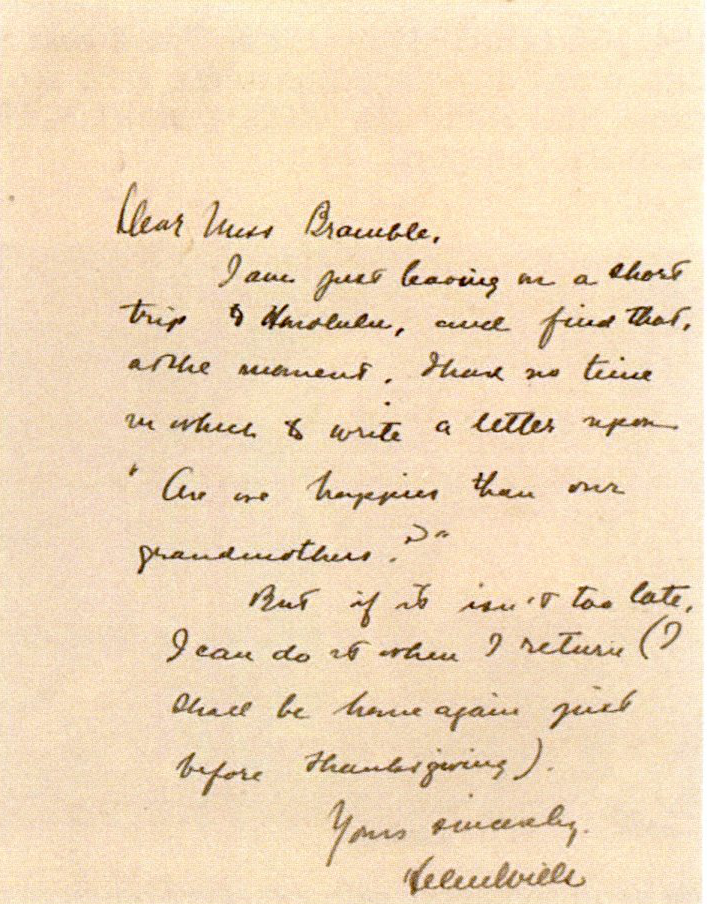 Dear Miss Bramble,
I am just leaving on a short
trip to Honolulu, and find that,
at the moment, I have no time
in which to write a letter upon
" Are we happier than our
grandmothers?"
But if it isn't too late,
I can do it when I return (I
shall be home again just
before Thanksgiving).
Yours sincerely,
Helen Wills